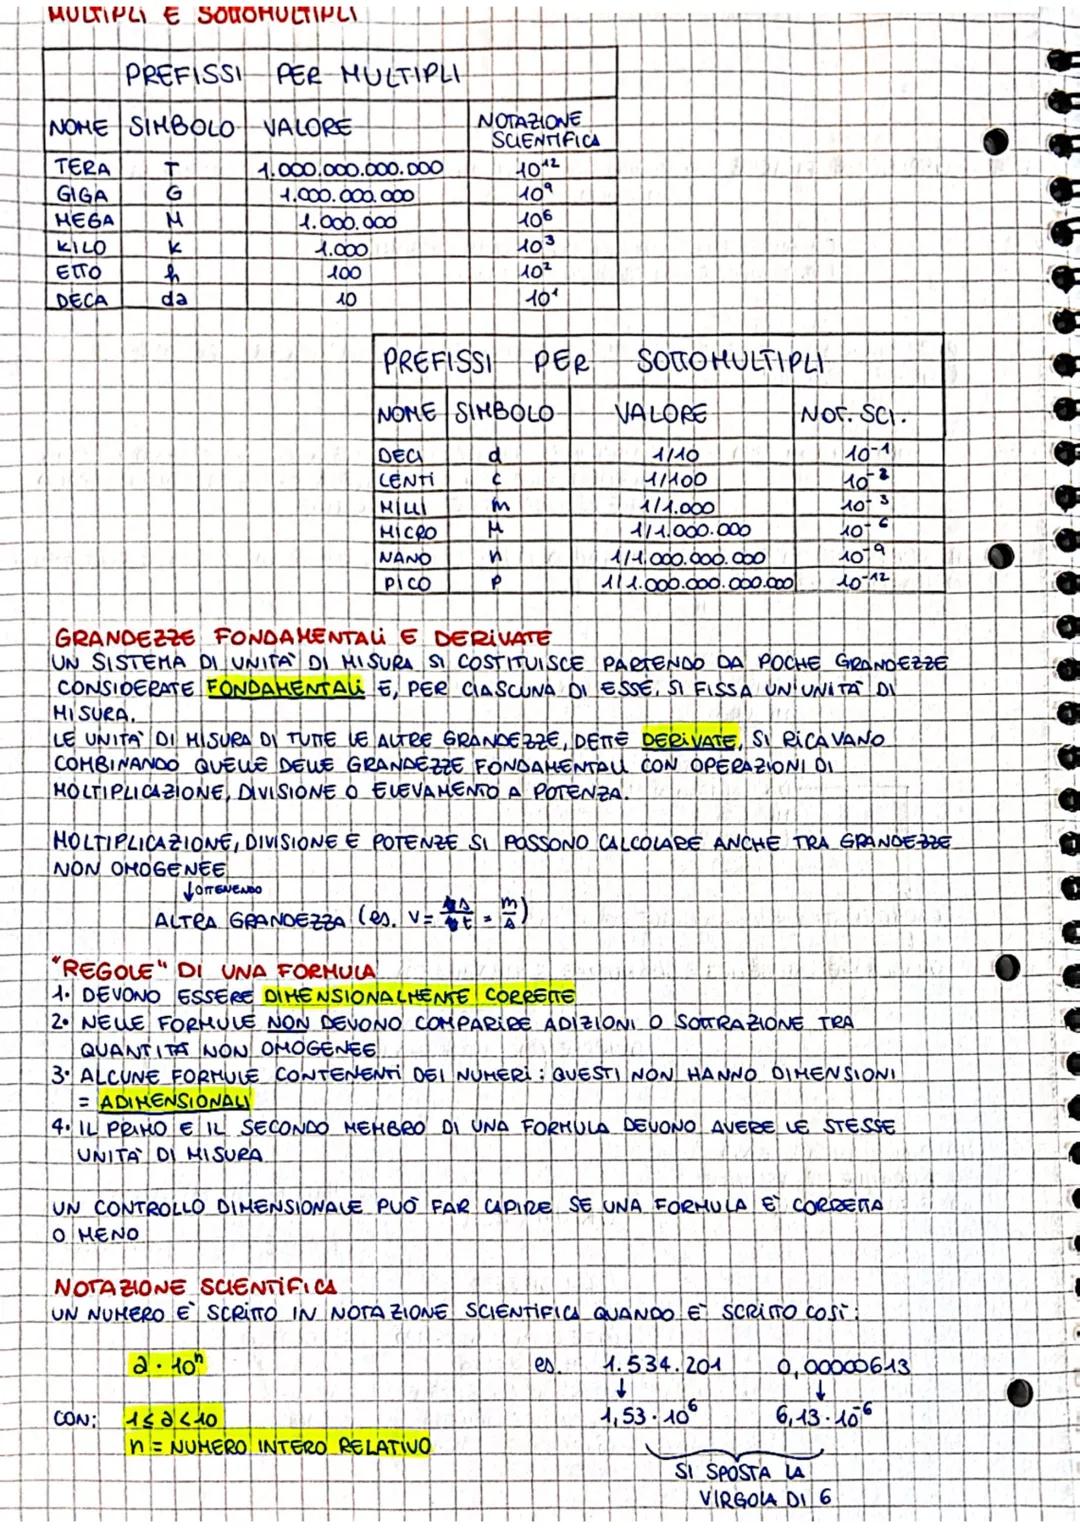 MULTIPLI E SOTTOMULTIPLI
PREFISSI PER MULTIPLI
NOME SIMBOLO VALORE NOTAZIONE SCIENTIFICA
TERA T 1.000.000.000.000 10¹²
GIGA G 1.000.000.000 10⁹
MEGA M 1.000.000 10⁶
KILO k 1.000 10³
ETTO h 100 10²
DECA da 10 10¹
PREFISSI PER SOTTOMULTIPLI
NOME SIMBOLO VALORE NOT. SCI.
DECI d 1/10 10⁻¹
CENTI c 1/100 10⁻²
MILLI m 1/1.000 10⁻³
MICRO μ 1/1.000.000 10⁻⁶
NANO n 1/1.000.000.000 10⁻⁹
PICO p 1/1.000.000.000.000 10⁻¹²
GRANDEZZE FONDAMENTALI E DERIVATE
UN SISTEMA DI UNITA' DI MISURA SI COSTITUISCE PARTENDO DA POCHE GRANDEZZE
CONSIDERATE FONDAMENTALI E, PER CIASCUNA DI ESSE, SI FISSA UN'UNITA' DI
MISURA.
LE UNITA' DI MISURA DI TUTTE LE ALTRE GRANDEZZE, DETTE DERIVATE, SI RICAVANO
COMBINANDO QUELLE DELLE GRANDEZZE FONDAMENTALI CON OPERAZIONI DI
MOLTIPLICAZIONE, DIVISIONE O ELEVAMENTO A POTENZA.
MOLTIPLICAZIONE, DIVISIONE E POTENZE SI POSSONO CALCOLARE ANCHE TRA GRANDEZZE
NON OMOGENEE
↓OTTENENDO
ALTRA GRANDEZZA (es. V = s/t = m/s)
"REGOLE" DI UNA FORMULA
1. DEVONO ESSERE DIMENSIONALMENTE CORRETTE
2. NELLE FORMULE NON DEVONO COMPARIRE ADIZIONI O SOTTRAZIONE TRA
QUANTITÀ NON OMOGENEE
3. ALCUNE FORMULE CONTENENTI DEI NUMERI: QUESTI NON HANNO DIMENSIONI
= ADIMENSIONALI
4. IL PRIMO E IL SECONDO MEMBRO DI UNA FORMULA DEVONO AVERE LE STESSE
UNITA' DI MISURA
UN CONTROLLO DIMENSIONALE PUÒ FAR CAPIRE SE UNA FORMULA E' CORRETTA
O MENO
NOTAZIONE SCIENTIFICA
UN NUMERO E' SCRITTO IN NOTAZIONE SCIENTIFICA QUANDO E' SCRITTO COSÌ:
a · 10ⁿ es. 1.534.201 0,00000613
↓ ↓
CON: 1 ≤ a < 10 1,53 · 10⁶ 6,13 · 10⁻⁶
n = NUMERO INTERO RELATIVO
SI SPOSTA LA
VIRGOLA DI 6